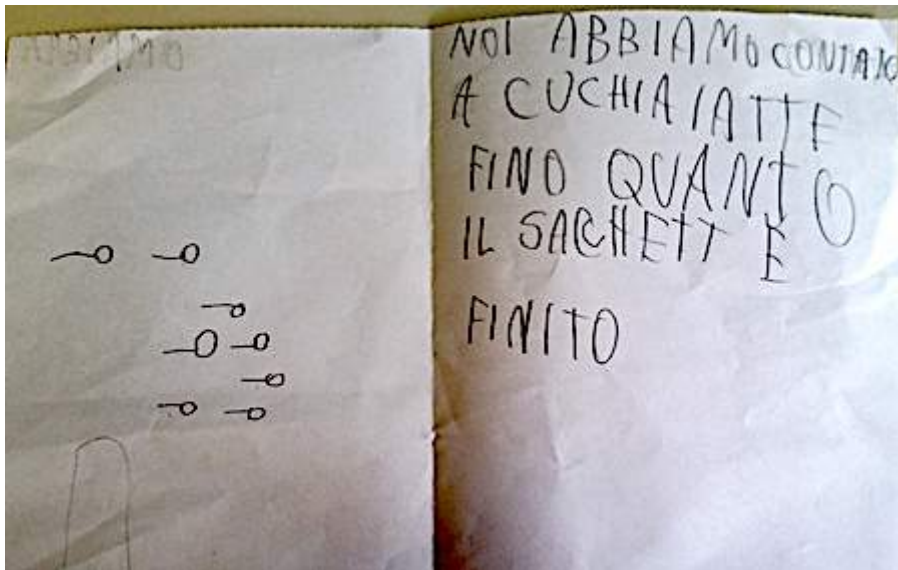 NOI ABBIAMO CONTATO
A CUCHIAIATTE
FINO QUANTO
IL SACHETT E
FINITO